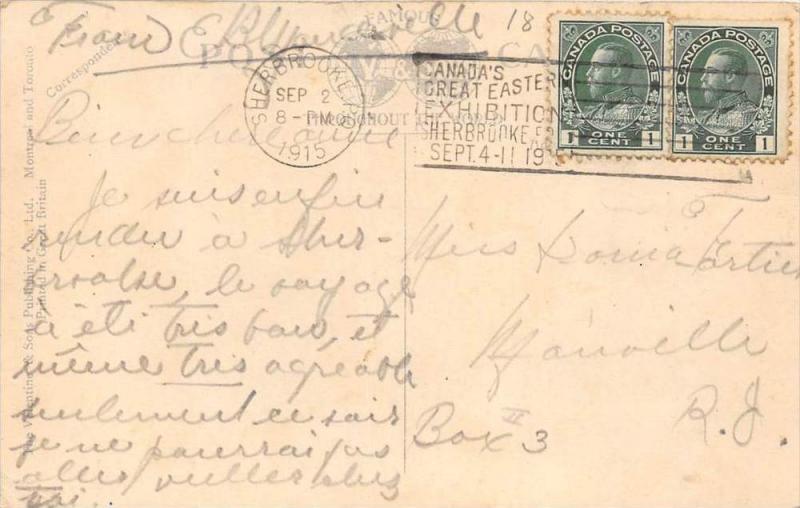 From E
18
FAMOUS
POST CARD
V. & S.
THROUGHOUT THE WORLD
SHERBROOKE
SEP 2
8-PM
1915
CANADA'S
GREAT EASTERN
EXHIBITION
SHERBROOKE
SEPT. 4-11 19
CANADA POSTAGE
1 ONE CENT 1
CANADA POSTAGE
1 ONE CENT 1
Correspondence
The Valentine & Sons Publishing Co. Ltd. Montreal and Toronto
Printed in Great Britain
Bien chère
Je suis enfin
rendu à Sher-
brooke, le voyage
à été très bon, et
même très agréable
seulement ce soir
je ne pourrai pas
aller veiller chez
toi..
Miss Fortier
Manville
R.I.
Box II 3